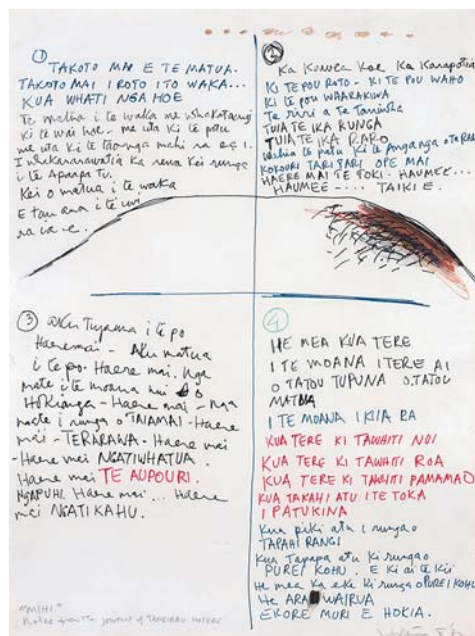 ①
TAKOTO MAI E TE MATUA.
TAKOTO MAI I ROTO I TO WAKA...
KUA WHATI NGA HOE
Te matua i te waka me whakatangi
ki te wai hoe - me uta ki te patu
me uta ki te taonga mahi na
ka rewa kei runga
i te Aparpa Tu.
Kei o matua i te waka
E tau ana i te
na ia - e.
②
Ka Kuruea Koe Ka Karapotia
KI TE POU ROTO - KI TE POU WAHO
Ki te pou WAARAKIWA
Te riri a te Taniwha
TUIA TE IKA RUNGA
TUIA TE IKA RARO
te patu Ki te Anganga o
KOKOURI TARI TARI OPE MAI
HAERE MAI TE TOKI - HAUMEE...
HAUMEE - ... TAIKI E.
③
aku Tupuna i te po
Haeremai - Aku matua
i te po. Haere mai. Nga
mate i te moana nui o
HoKianga - Haere mai - nga
mate i runga o TAIAMAI - Haere
mai - TERARAWA - Haere mai
- Haere mai NGATIWHATUA.
Haere mai TE AUPOURI.
NGAPUHI Haere mai... Haere
mai NGATI KAHU.
④
HE MEA KUA TERE
I TE MOANA I TERE AI
O TATOU TUPUNA O TATOU
MATUA
I TE MOANA I KIIA RA
KUA TERE KI TAWHITI NUI
KUA TERE KI TAWHITI ROA
KUA TERE KI TAWHITI PAMAMAO
KUA TAKAHI ATU I TE TOKA
I PATUKINA
Kua piki atu i runga o
TAPAHI RANGI
Kua Tapapa atu Ki runga o
PUREI KOHU. E Ki ai te Kii
He mea Ka eke Ki runga o PUREI KOHU
He ARA WAIRUA
EKORE MURI E HOKIA.
"MIHI"
Notes from the journal of